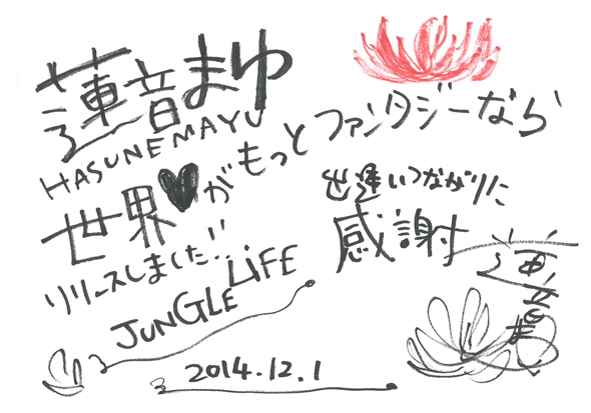 蓮音まゆ
HASUNEMAYU
世界♥がもっとファンタジーなら
リリースしました!!
出逢いつながりに
感謝
JUNGLE LiFE
蓮音まゆ
2014.12.1